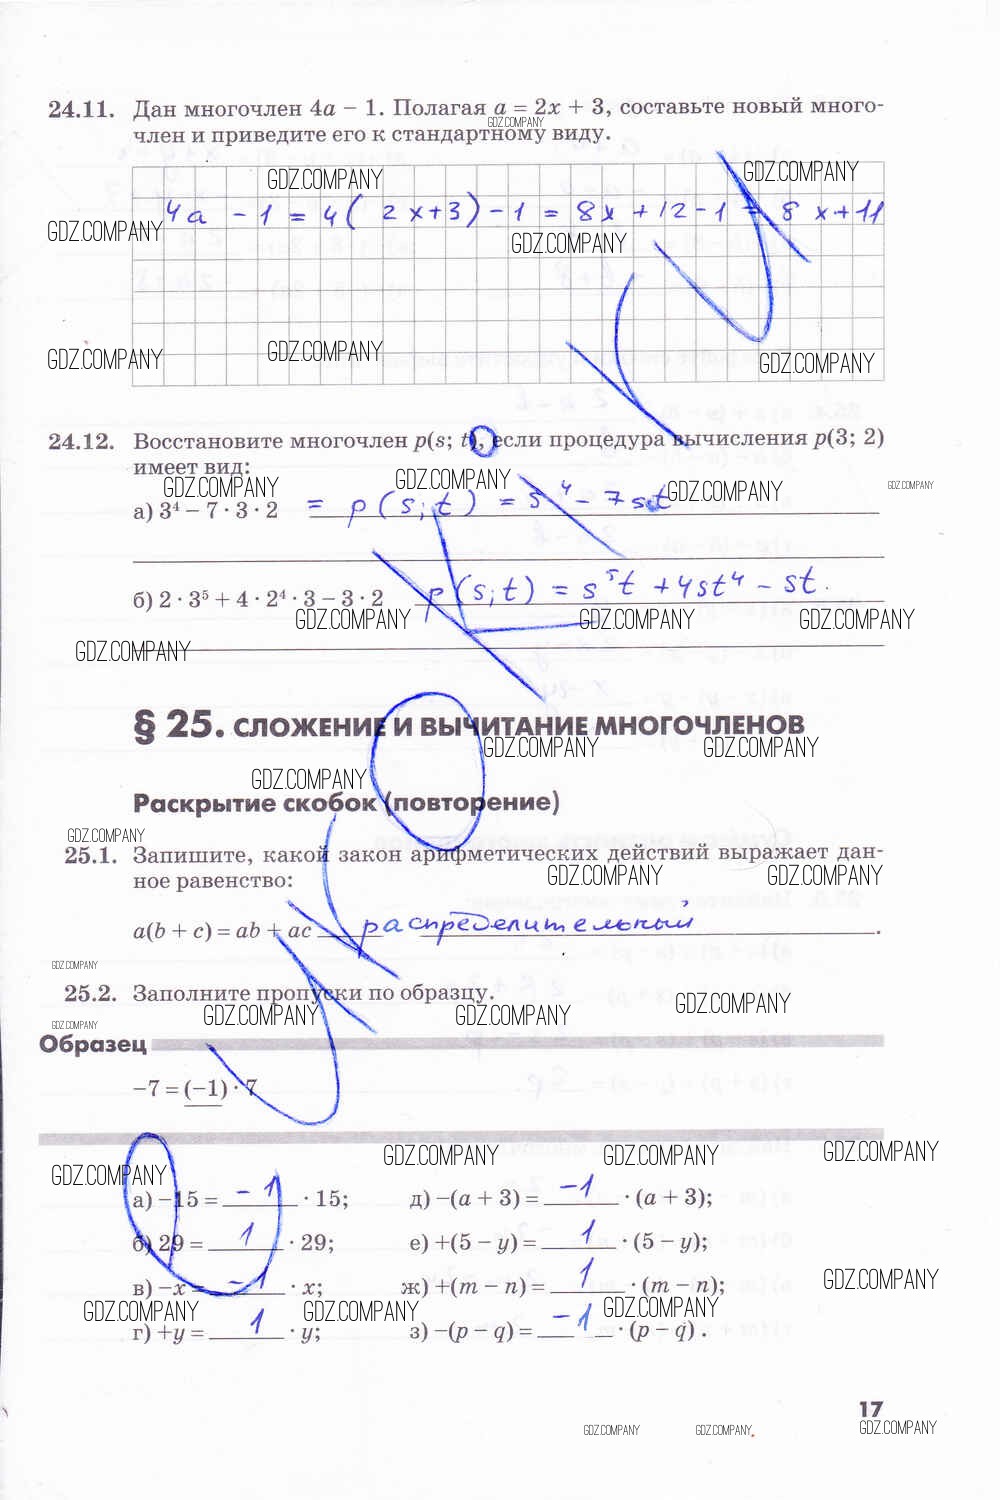 24.11. Дан многочлен 4a − 1. Полагая a = 2x + 3, составьте новый много-
GDZ.COMPANY
член и приведите его к стандартному виду.
GDZ.COMPANY GDZ.COMPANY
4a − 1 = 4( 2x+3) − 1 = 8x + 12 − 1 = 8x+11
GDZ.COMPANY GDZ.COMPANY
GDZ.COMPANY GDZ.COMPANY GDZ.COMPANY
24.12. Восстановите многочлен p(s; t), если процедура вычисления p(3; 2)
имеет вид:
GDZ.COMPANY GDZ.COMPANY GDZ.COMPANY GDZ.COMPANY
а) 3⁴ − 7 · 3 · 2 = p(s;t) = s⁴ − 7st
б) 2 · 3⁵ + 4 · 2⁴ · 3 − 3 · 2 p(s;t) = s⁵t + 4st⁴ − st.
GDZ.COMPANY GDZ.COMPANY GDZ.COMPANY
GDZ.COMPANY
§ 25. СЛОЖЕНИЕ И ВЫЧИТАНИЕ МНОГОЧЛЕНОВ
GDZ.COMPANY GDZ.COMPANY
GDZ.COMPANY
Раскрытие скобок (повторение)
GDZ.COMPANY
25.1. Запишите, какой закон арифметических действий выражает дан-
ное равенство:
GDZ.COMPANY GDZ.COMPANY
a(b + c) = ab + ac распределительный.
GDZ.COMPANY
25.2. Заполните пропуски по образцу.
GDZ.COMPANY GDZ.COMPANY GDZ.COMPANY
GDZ.COMPANY
Образец
−7 = (−1) · 7
GDZ.COMPANY GDZ.COMPANY GDZ.COMPANY GDZ.COMPANY
а) −15 = −1 · 15; д) −(a + 3) = −1 · (a + 3);
б) 29 = 1 · 29; е) +(5 − y) = 1 · (5 − y);
в) −x = −1 · x; ж) +(m − n) = 1 · (m − n);
GDZ.COMPANY
GDZ.COMPANY GDZ.COMPANY GDZ.COMPANY
г) +y = 1 · y; з) −(p − q) = −1 · (p − q) .
17
GDZ.COMPANY GDZ.COMPANY GDZ.COMPANY